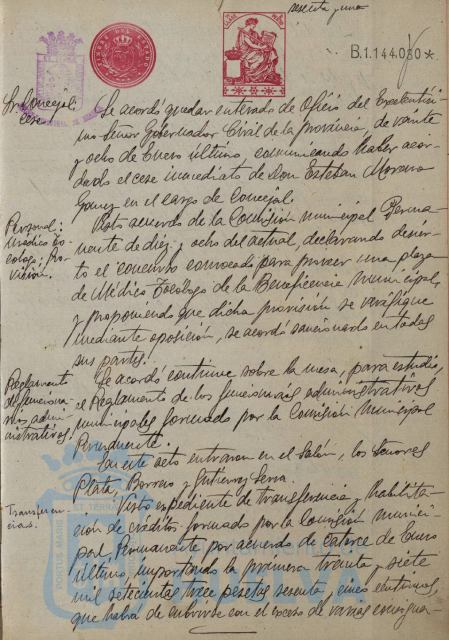 sesenta y una
B.1.144.080*
Sr. Concejal:
cese
Se acordó quedar enterado de Oficio del Excelentísi-
mo Señor Gobernador Civil de la provincia, de veinte
y ocho de Enero último, comunicando haber acor-
dado el cese inmediato de Don Esteban Moreno
en el cargo de Concejal.
Personal:
Médico To-
cólogo; Pro-
visión.
Visto acuerdo de la Comisión municipal Perma-
nente de diez y ocho del actual, declarando desier-
to el concurso convocado para proveer una plaza
de Médico Tocólogo de la Beneficencia Municipal,
y proponiendo que dicha provisión se verifique
mediante oposición, se acordó sancionarlo en todas
sus partes.
Reglamento
de funciona-
rios admi-
nistrativos.
Se acordó continúe sobre la mesa, para estudio,
el Reglamento de los funcionarios administrativos
municipales formado por la Comisión Municipal
Permanente.
En este acto entraron en el Salón, los Señores
Plata, Borrero y Gutierrez Serra.
Transferen-
cias.
Visto expediente de transferencia y habilita-
ción de créditos formado por la Comisión munici-
pal Permanente por acuerdo de catorce de Enero
último, importando la primera treinta y siete
mil setecientas trece pesetas sesenta y cinco centimos,
que habrá de cubrirse con el exceso de varias consigna-